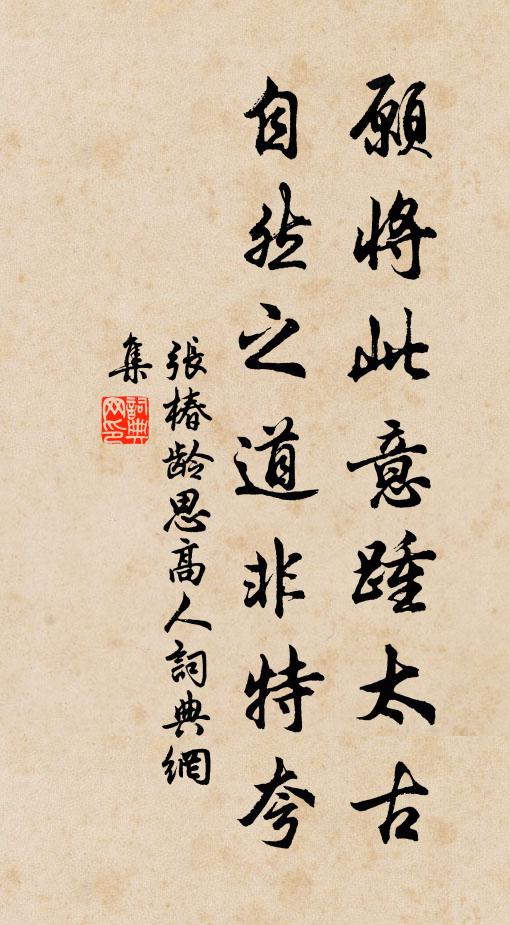 願將此意踵太古
自然之道非特夸
張椿龄思高人詞典網
集
詞典網印